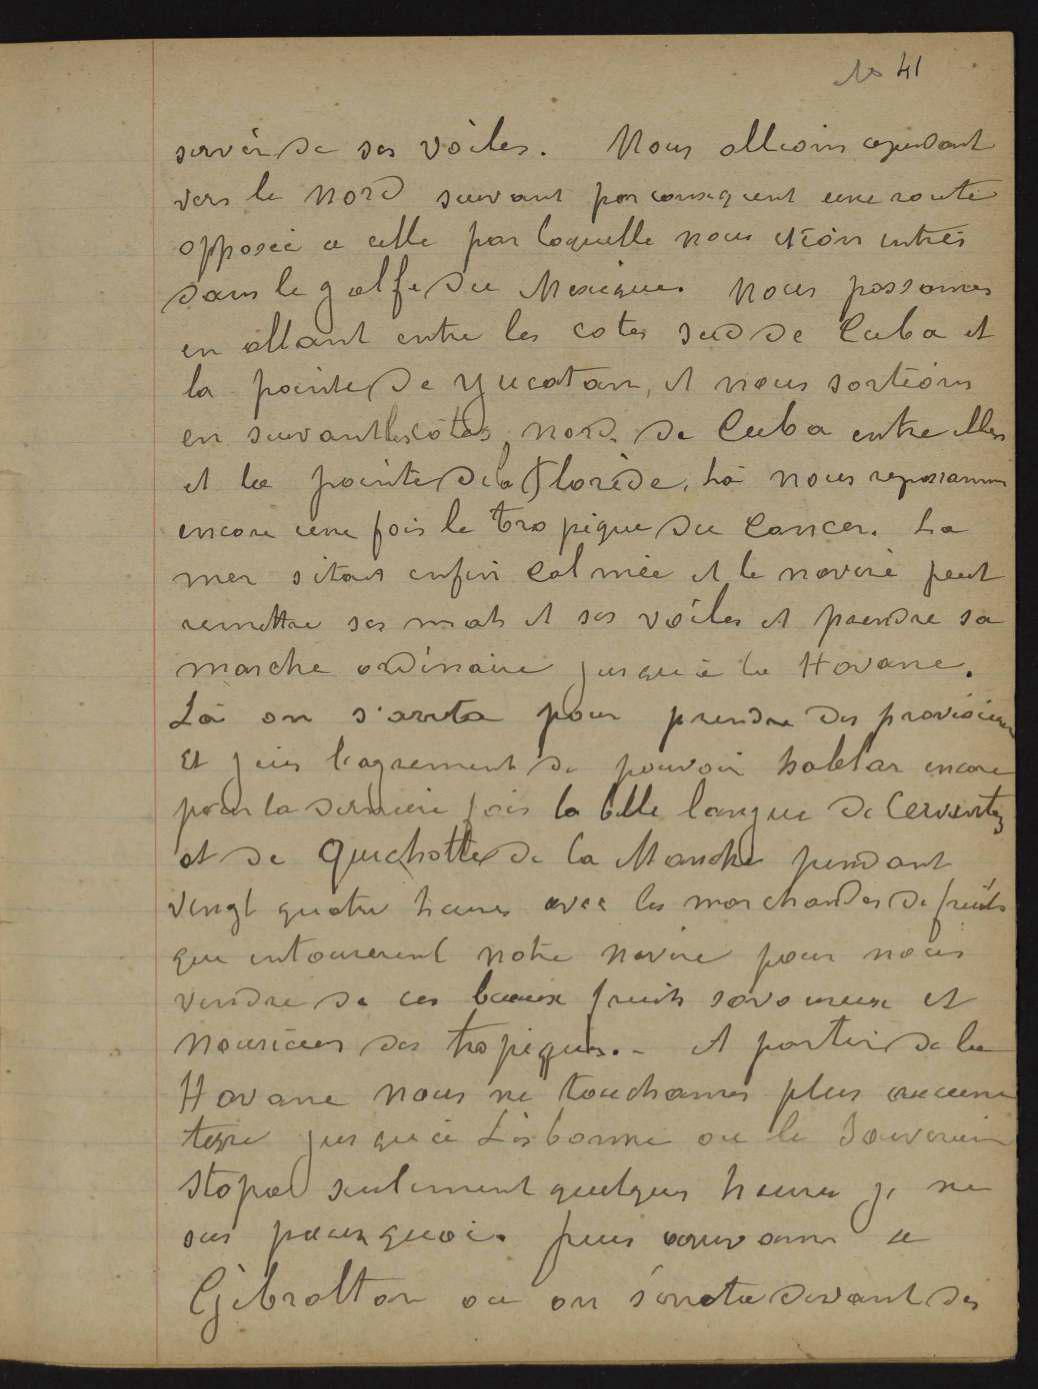 No 41
servir de ses voiles. Nous allions cependant
vers le Nord suivant par conséquent une route
opposée a celle par laquelle nous étions entrés
dans le golfe du Mexique. Nous passames
en allant entre les cotes sud de Cuba et
la pointe de Yucatan, et nous sortions
en suivant les côtes nord de Cuba entre elles
et la pointe de la Floride. Là nous repassames
encore une fois le tropique du Cancer. La
mer s'etait enfin Calmée et le navire peut
remettre ses mats et ses voiles et prendre sa
marche ordinaire jusqu'à la Havane.
Là on s'arreta pour prendre des provisions
Et j'eus l'agrement de pouvoir hablar encore
pour la derniere fois la belle langue de Cervantes
et de Quichotte de la Manche pendant
vingt quatre heures avec les marchandes de fruits
qui entourerent notre navire pour nous
vendre de ces beaux fruits savoureux et
nouriciers des tropiques. - A partir de la
Havane nous ne touchames plus aucune
terre jusqu'à Lisbonne ou le Souverain
stopa seulement quelques heures je ne
sais pourquoi. puis arrivame a
Gibraltar ou on s'arreta devant des